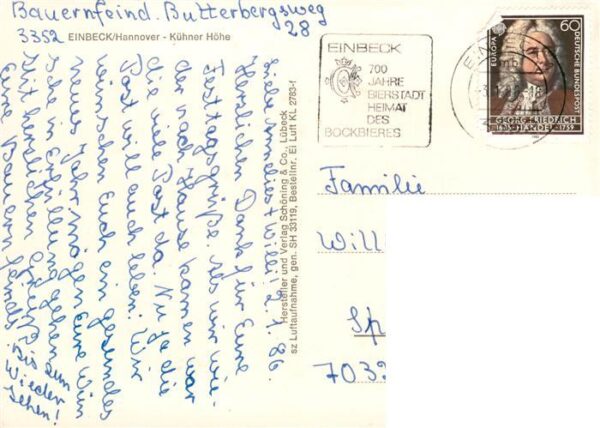 Bauernfeind. Butterbergsweg
28
3352 EINBECK/Hannover - Kühner Höhe
EINBECK
700
JAHRE
BIERSTADT
HEIMAT
DES
BOCKBIERES
EUROPA
60
DEUTSCHE BUNDESPOST
GEORG FRIEDRICH
HÄNDEL 1759
Hersteller und Verlag Schöning & Co., Lübeck
sz Luftaufnahme, gen. SH 33119, Bestellnr. Ei Luft KL 2783-f
Willi! 2. 1. 86.
Herzlichen Dank für Eure
Festtagsgrüße. Als wir wie-
der nach Hause kamen war
die viele Post da. Nu ja die
Post will auch leben. Wir
wünschen Euch ein gesundes
neues Jahr mögen Eure Wün
sche in Erfüllung gehen.
Mit herzlichen Grüßen
Eure Bauernfeinds.
Bis zum
Wieder
sehen!
Familie
Will
Sp
703